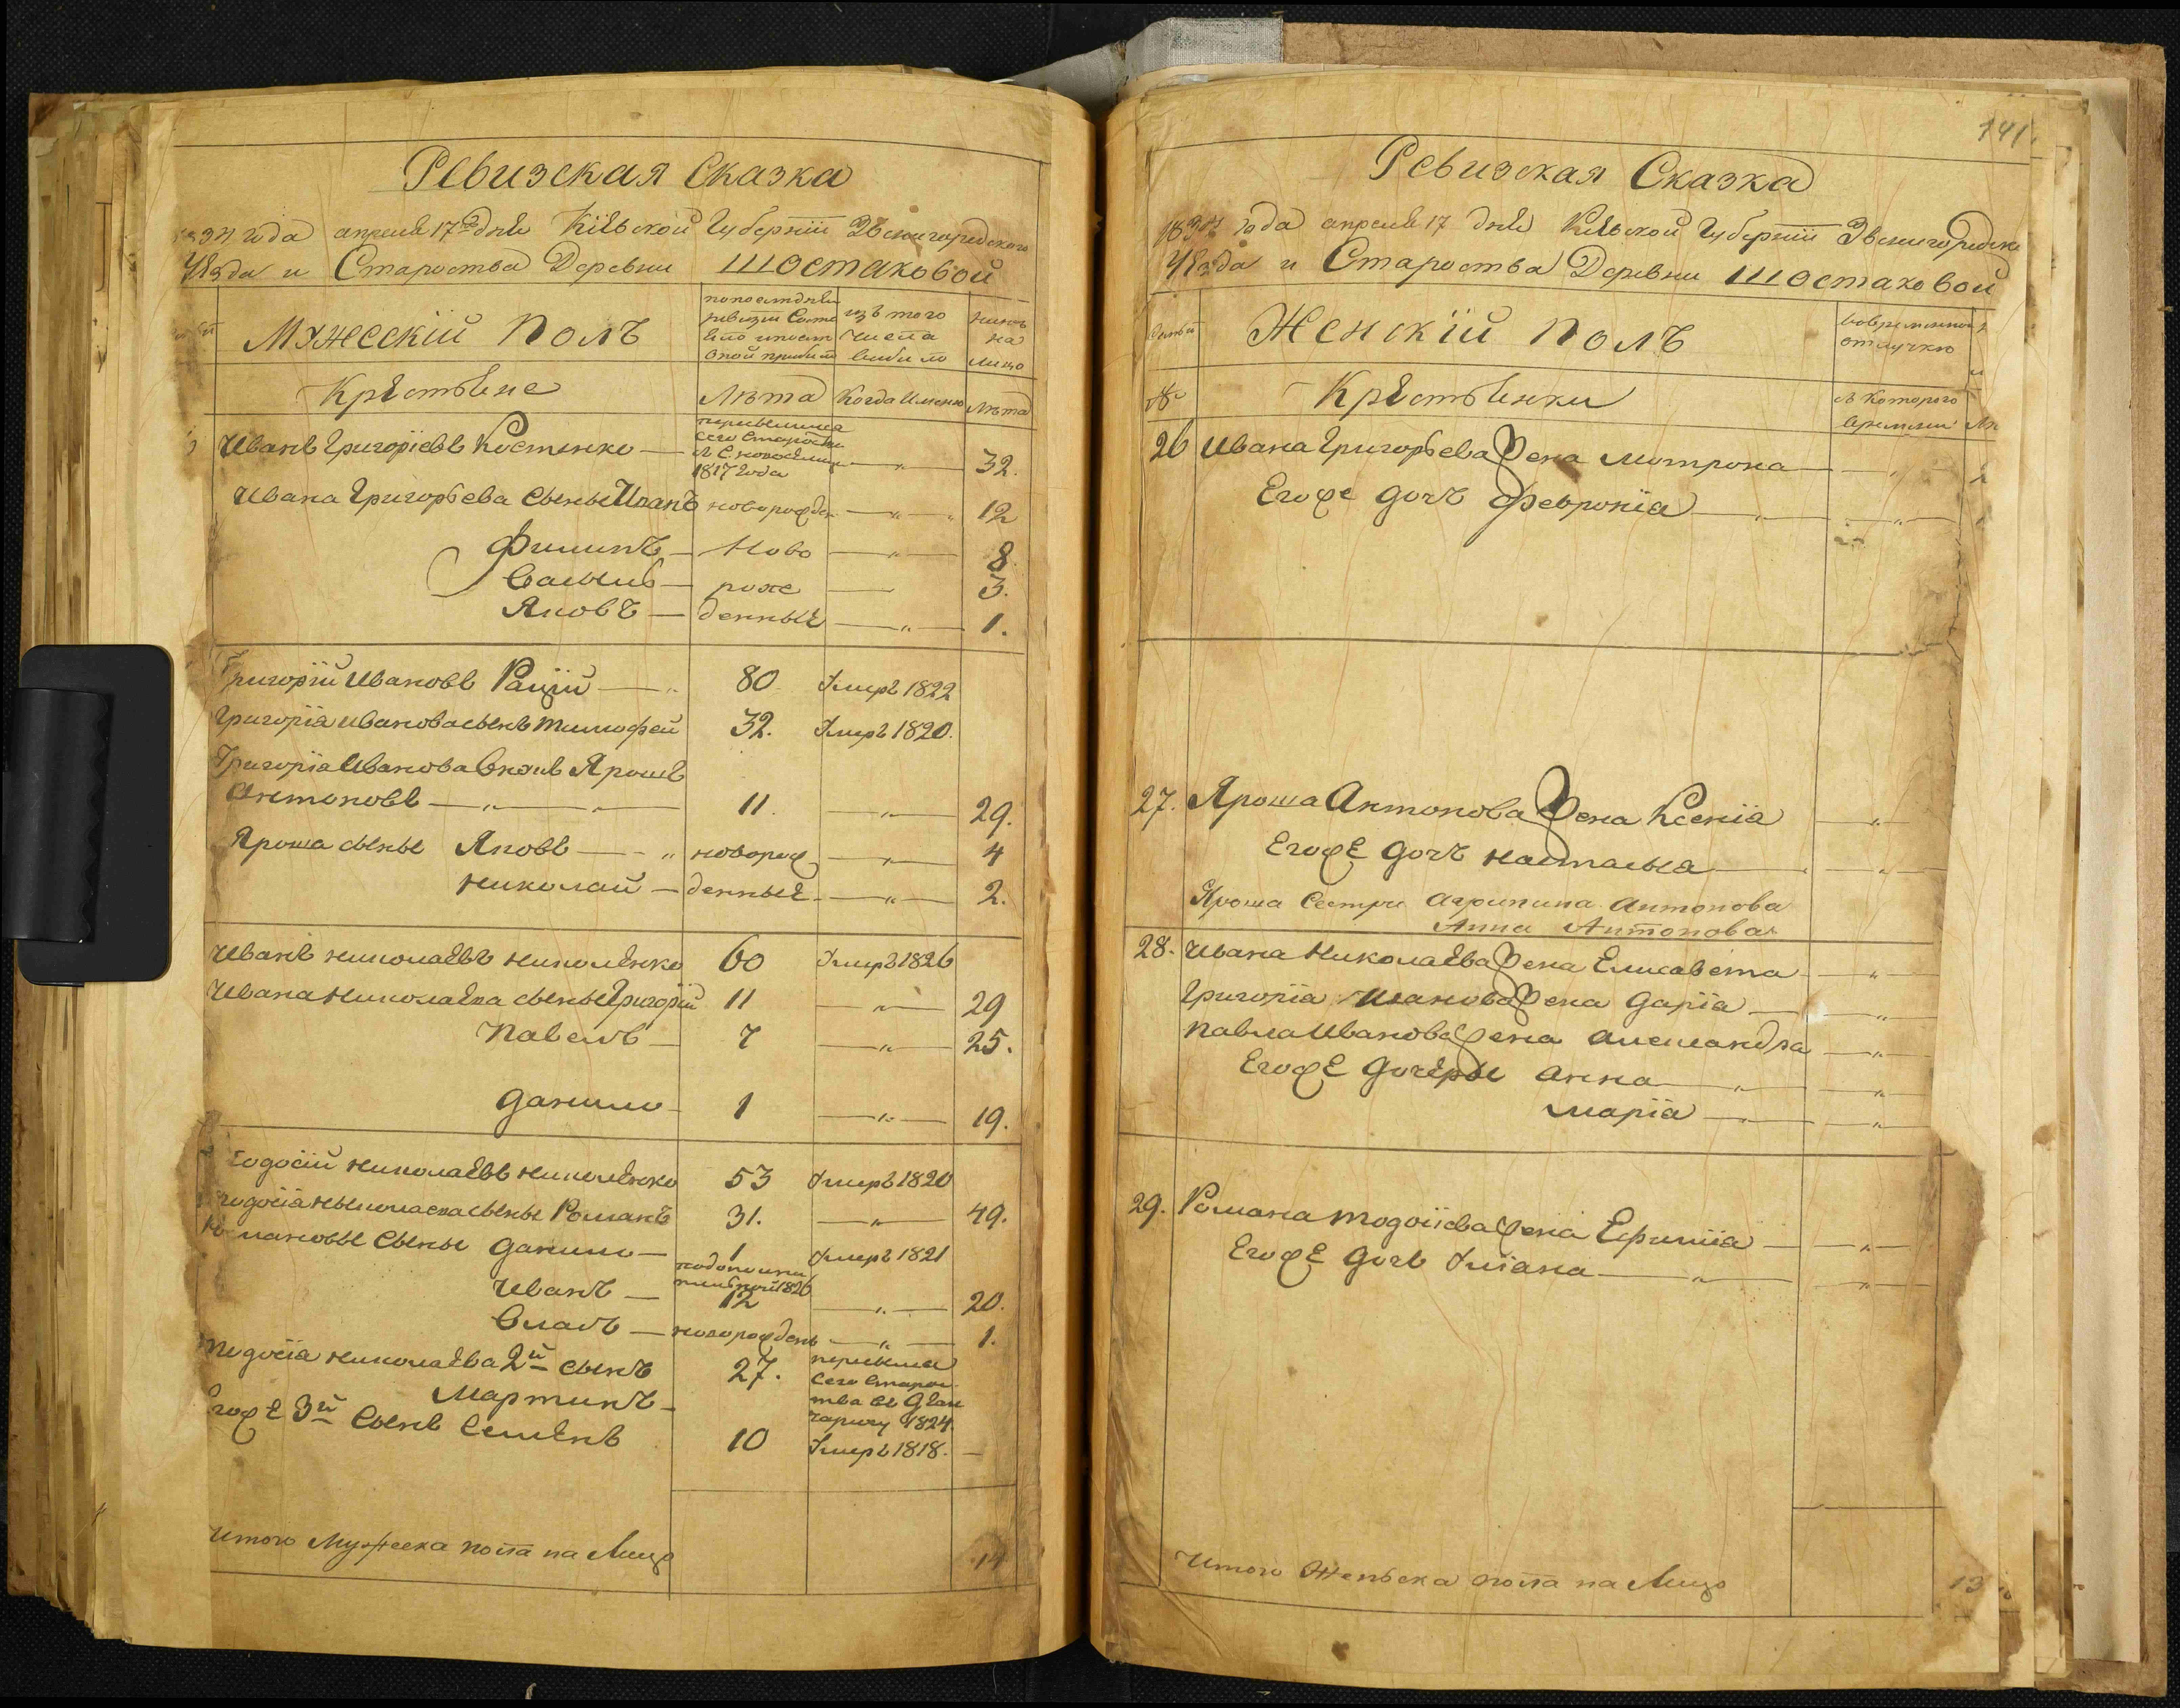 Ревизская Сказка
1834 года апреля 17го дня Кіевской Губерніи Звенигородского
Уезда и Староства Деревни Шостаковой
Мужескій Полъ
изъ того числа выбыло
ныне на лицо
Крестьяне
Лѣта
Когда именно
Лѣта
Иванъ Григоріевъ Костенко — 1817 года — 32.
Ивана Григорьева сыны Иванъ новорожден — 12
Филипъ — Ново — 8
Василь — рож — 3.
Яковъ — денные — 1.
Григорій Ивановъ Рацій — 80 Умеръ 1822
Григорія Иванова сынъ Тимофей 32. Умеръ 1820.
Григорія Иванова Внукъ Ярошъ
Антоновъ — 11. — 29.
Яроша сыны Яковъ — новорож — 4
Николай — денные — 2.
Иванъ Николаевъ Николенко 60 Умеръ 1826
Ивана Николаева сыны Григорій 11 — 29
Павелъ — 7 — 25.
Данило — 1 — 19.
Тодосій Николаевъ Николенко 53 Умеръ 1820
Тодосія Николаева сыны Романъ 31. — 49.
Романовы Сыны Данило — 1 Умеръ 1821
Иванъ — 12 — 20.
Власъ — новорожденъ — 1.
Тодосія Николаева 2й сынъ 27.
Мартинъ —
1824.
Его же 3й Сынъ Семенъ 10 Умеръ 1818. —
Итого Мужеска пола на Лицо 14
141.
Ревизская Сказка
1834 года апреля 17 дня Кіевской Губерніи Звенигородско
Уезда и Староства Деревни Шостаковой
Женскій Полъ
Во временной отлучке
№
Крестьянки
Съ Которого времени
26 Ивана Григорьева Жена Мотрона —
Его же дочь Февронія —
27. Яроша Антонова Жена Ксенія —
Его же дочь Настасыя —
Яроша Сестры Агрипина Антонова
Анна Антонова
28. Ивана Николаева Жена Елисавета —
Григорія Иванова Жена Дарія —
Павла Иванова Жена Александра —
Его же дочеры Анна —
Марія —
29. Романа Тодосіева Жена Ефимія —
Его же дочь Уліана —
Итого Женьска пола на Лицо 13